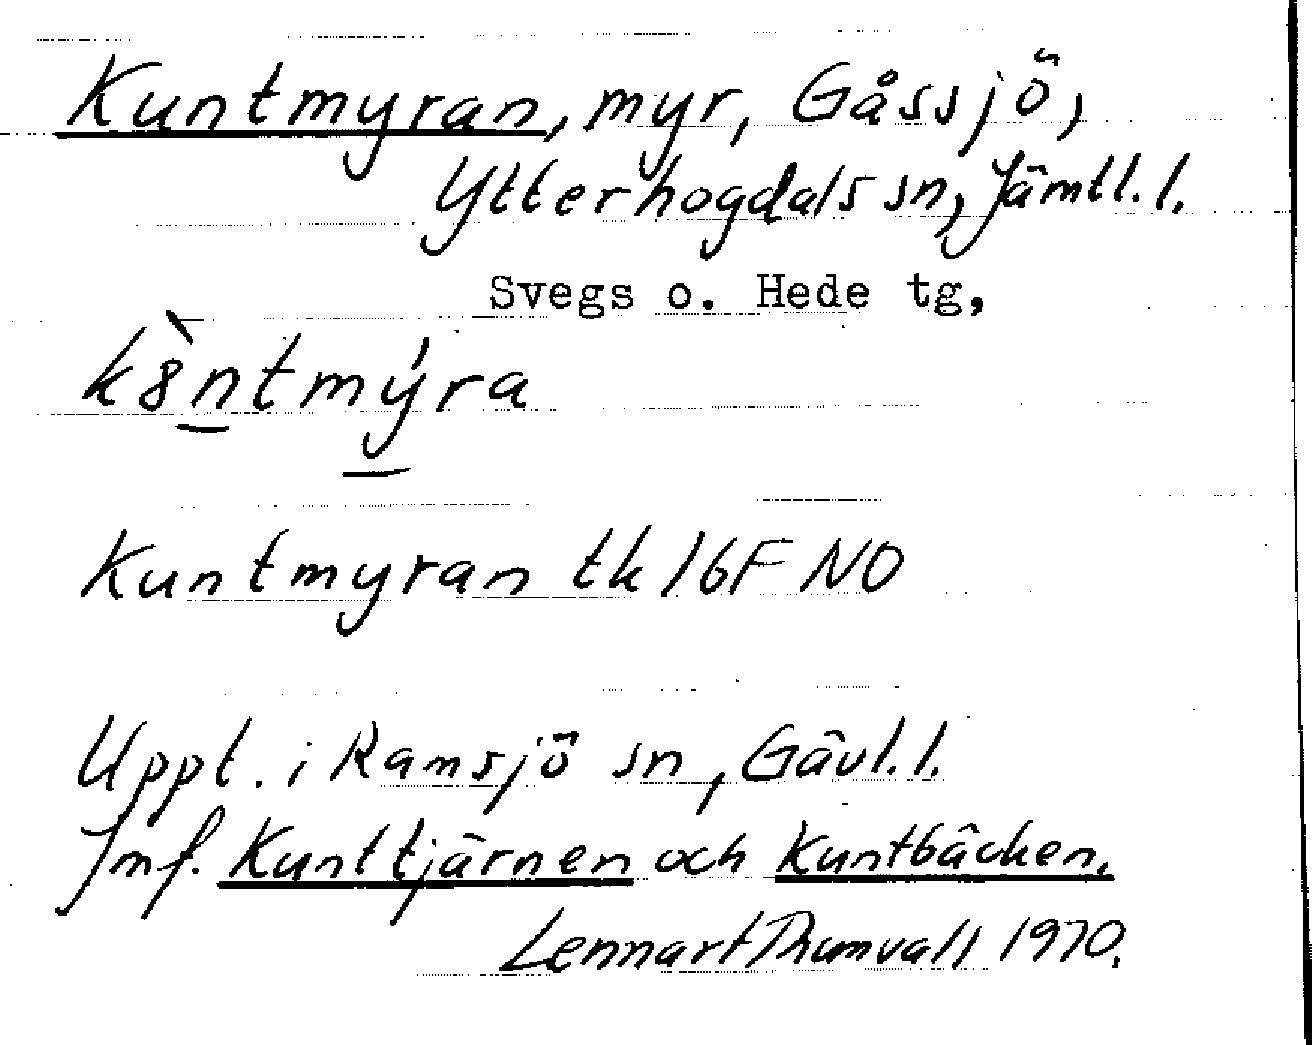 Kuntmyran, myr, Gåssjö,
Ytterhogdals sn, Jämtl. l.
Svegs o. Hede tg,
k8̀ntmýra
Kuntmyran tk 16F NO
Uppt. i Ramsjö sn, Gävl. l.
Jmf. Kunttjärnen och Kuntbäcken.
Lennart Thumvall 1970.